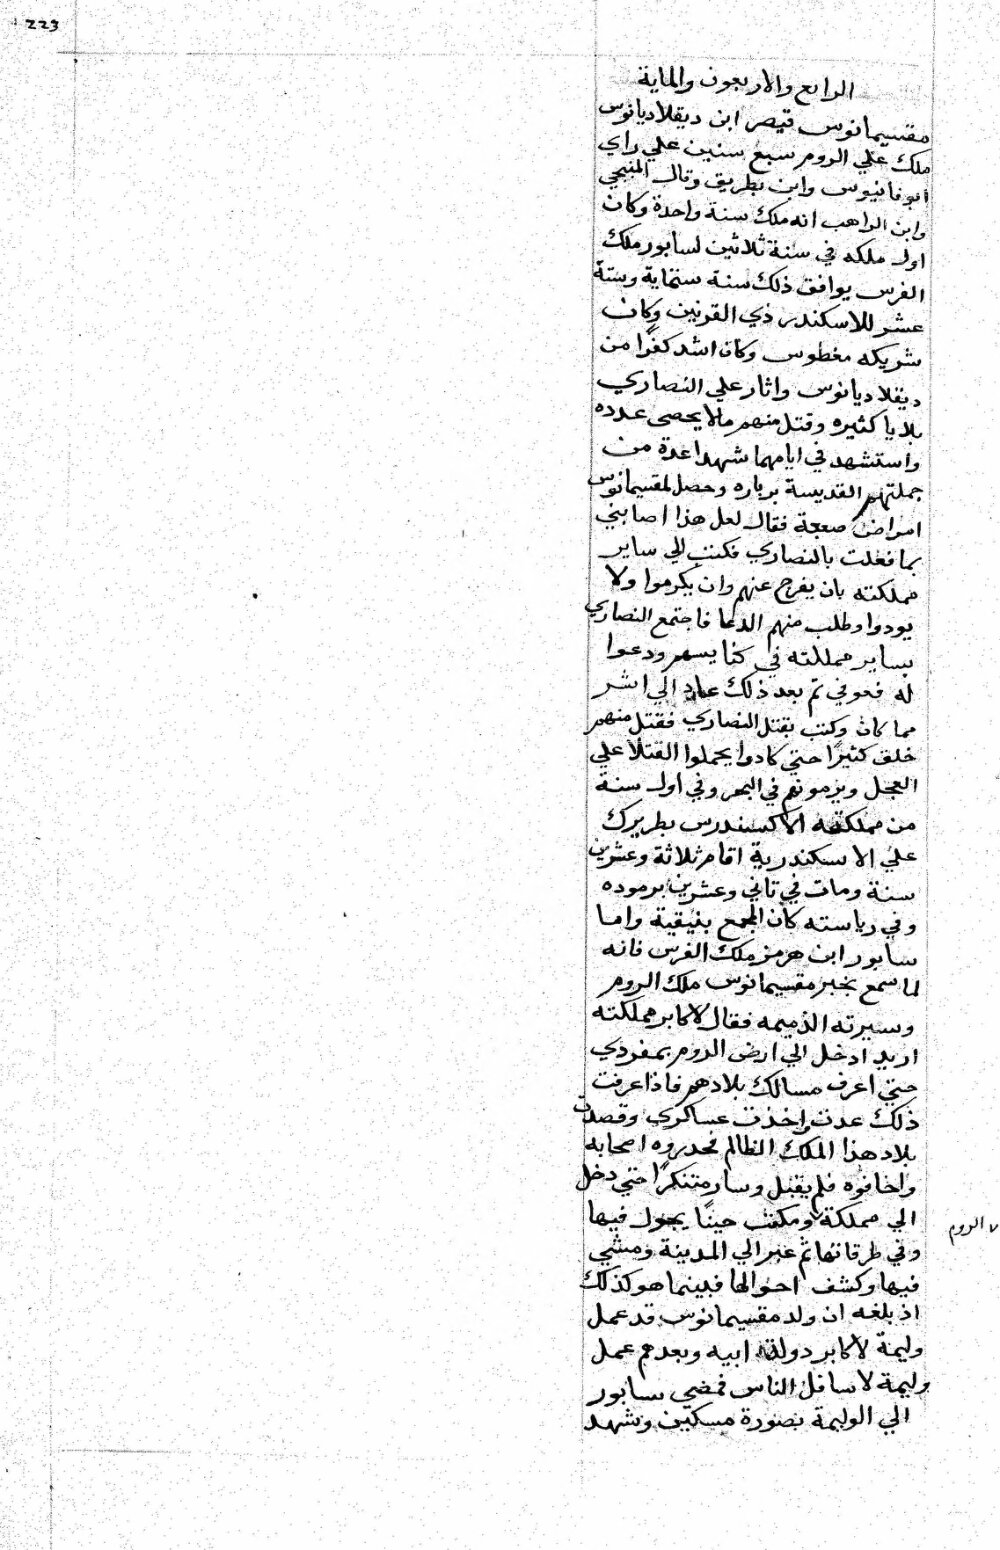 223
الرابع والاربعون والماية
مقسيمانوس قيصر ابن ديقلاديانوس
ملك علي الروم سبع سنين علي راي
ابوفانيوس وابن بطريق وقال المنبجي
وابن الراهب انه ملك سنة واحدة وكان
اول ملكه في سنة ثلاثين لسابور ملك
الفرس يوافق ذلك سنة ستماية وستة
عشر للاسكندر ذي القرنين وكان
شريكه مغطوس وكان اشد كفرًا من
ديقلاديانوس واثار علي النصاري
بلايا كثيره وقتل منهم مالا يحصى عدده
واستشهد في ايامهما شهدا عدة من
جملتهم القديسة برباره وحصل لمقسيمانوس
امراض صعبة فقال لعل هذا اصابني
بما فعلت بالنصاري فكتب الي ساير
مملكته بان يفرج عنهم وان يكرموا ولا
يودوا وطلب منهم الدعا فاجتمع النصاري
بساير مملكته في كنايسهم ودعوا
له فعوفي ثم بعد ذلك عاد الي اشر
مما كان وكتب بقتل النصاري فقتل منهم
خلق كثيرًا حتي كادوا يحملوا القتلا علي
العجل ويرمونهم في البحر وفي اول سنة
من مملكته الاكسندرس بطريرك
علي الاسكندرية اقام ثلاثة وعشرين
سنة ومات في تاني وعشرين برموده
وفي رياسته كان المجمع بنيقية واما
سابور ابن هرمز ملك الفرس فانه
لما سمع بخبر مقسيمانوس ملك الروم
وسيرته الذميمه فقال لاكابر مملكته
اريد ادخل الي ارض الروم بمفردي
حتي اعرف مسالك بلادهم فاذا عرفت
ذلك عدت واخذت عساكري وقصدت
بلاد هذا الملك الظالم فحدروه اصحابه
واخافوه فلم يقبل وسار متنكرًا حتي دخل
الي مملكة ومكث حينًا يجول فيها
الروم
وفي طرقاتها ثم عبر الي المدينة ومشي
فيها وكشف احوالها فبينما هو كذلك
اذ بلغه ان ولد مقسيمانوس قد عمل
وليمة لاكابر دولة ابيه وبعدهم عمل
وليمة لاسافل الناس فمضي سابور
الي الوليمة بصورة مسكين وشهد